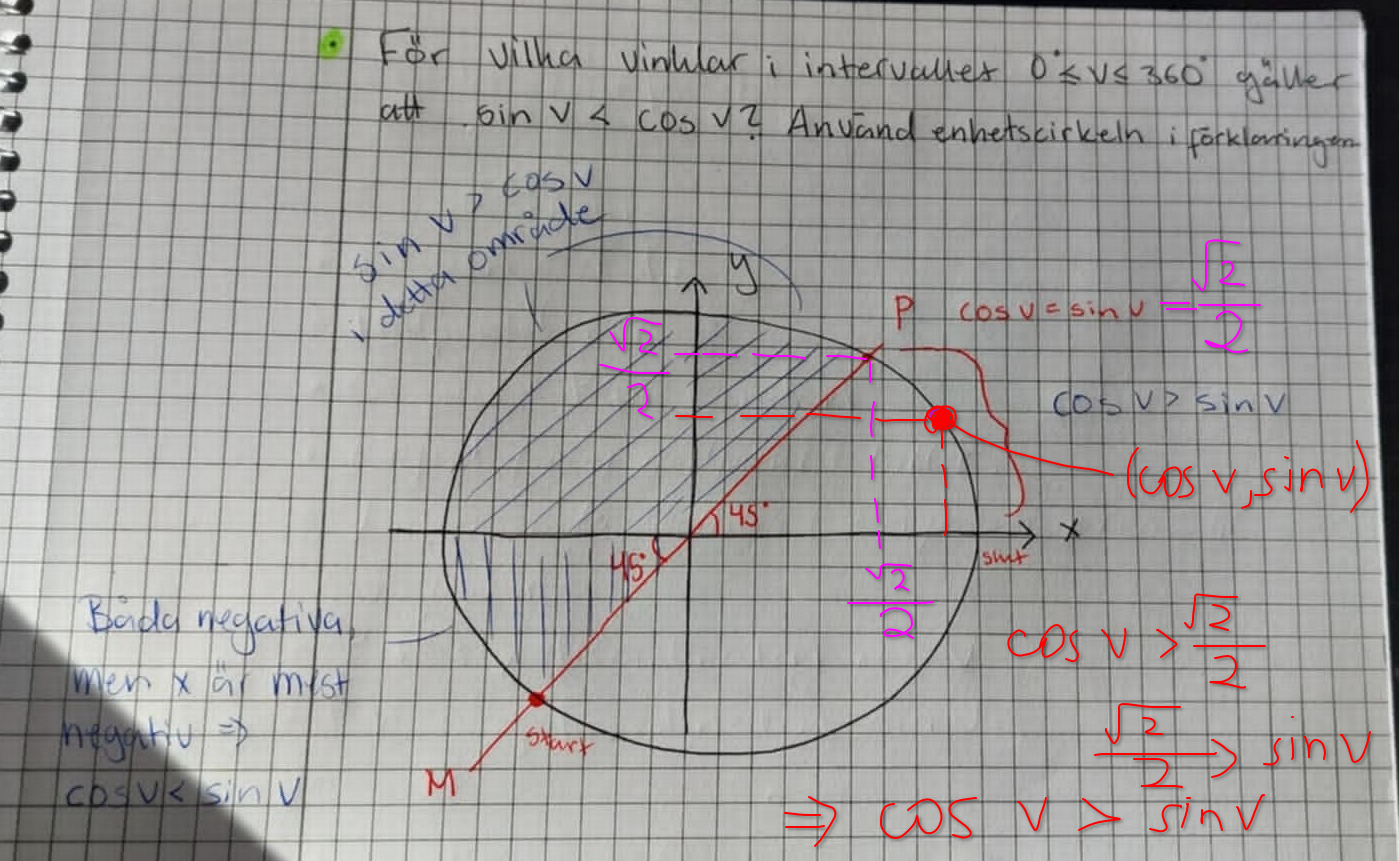 För vilka vinklar i intervallet 0° ≤ v ≤ 360° gäller
att sin v < cos v? Använd enhetscirkeln i förklaringen
sin v > cos v
i detta område
y
√2/2
P cos v = sin v = √2/2
cos v > sin v
(cos v, sin v)
45°
x
45°
slut
√2/2
Båda negativa,
men x är mest
negativ ⇒
cos v < sin v
start
M
cos v > √2/2
√2/2 > sin v
⇒ cos v > sin v